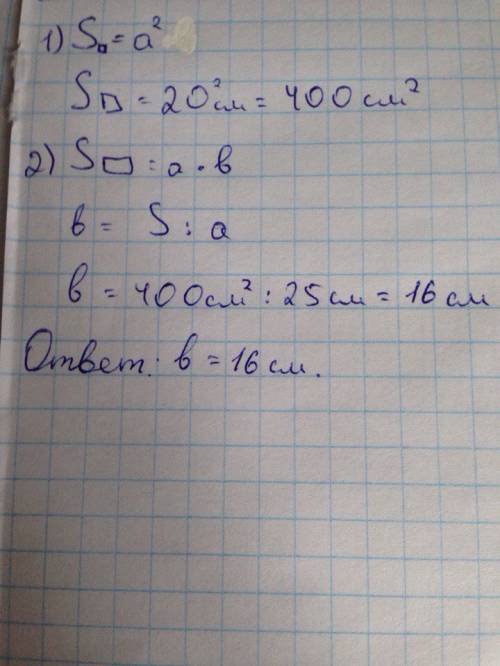 1) S□ = a²
S□ = 20²см = 400 см²
2) S▭ = a · в
в = S : a
в = 400см² : 25см = 16 см
Ответ: в = 16 см.